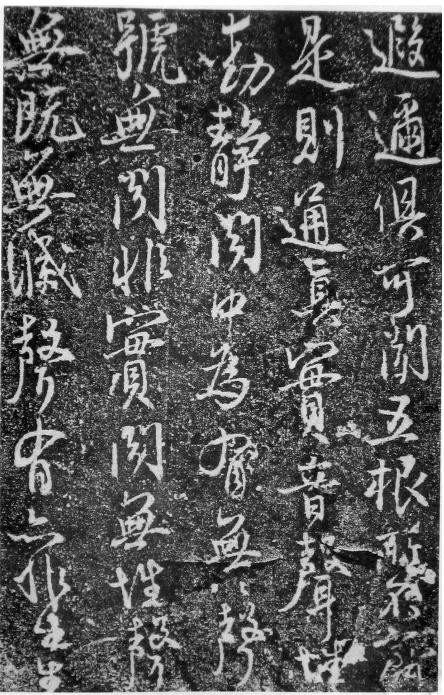 遐邇俱可聞五根所不齊
是則通真實音聲性
動靜聞中為有無〻聲
號無聞非實聞無性聲
無既無滅聲有亦非生生